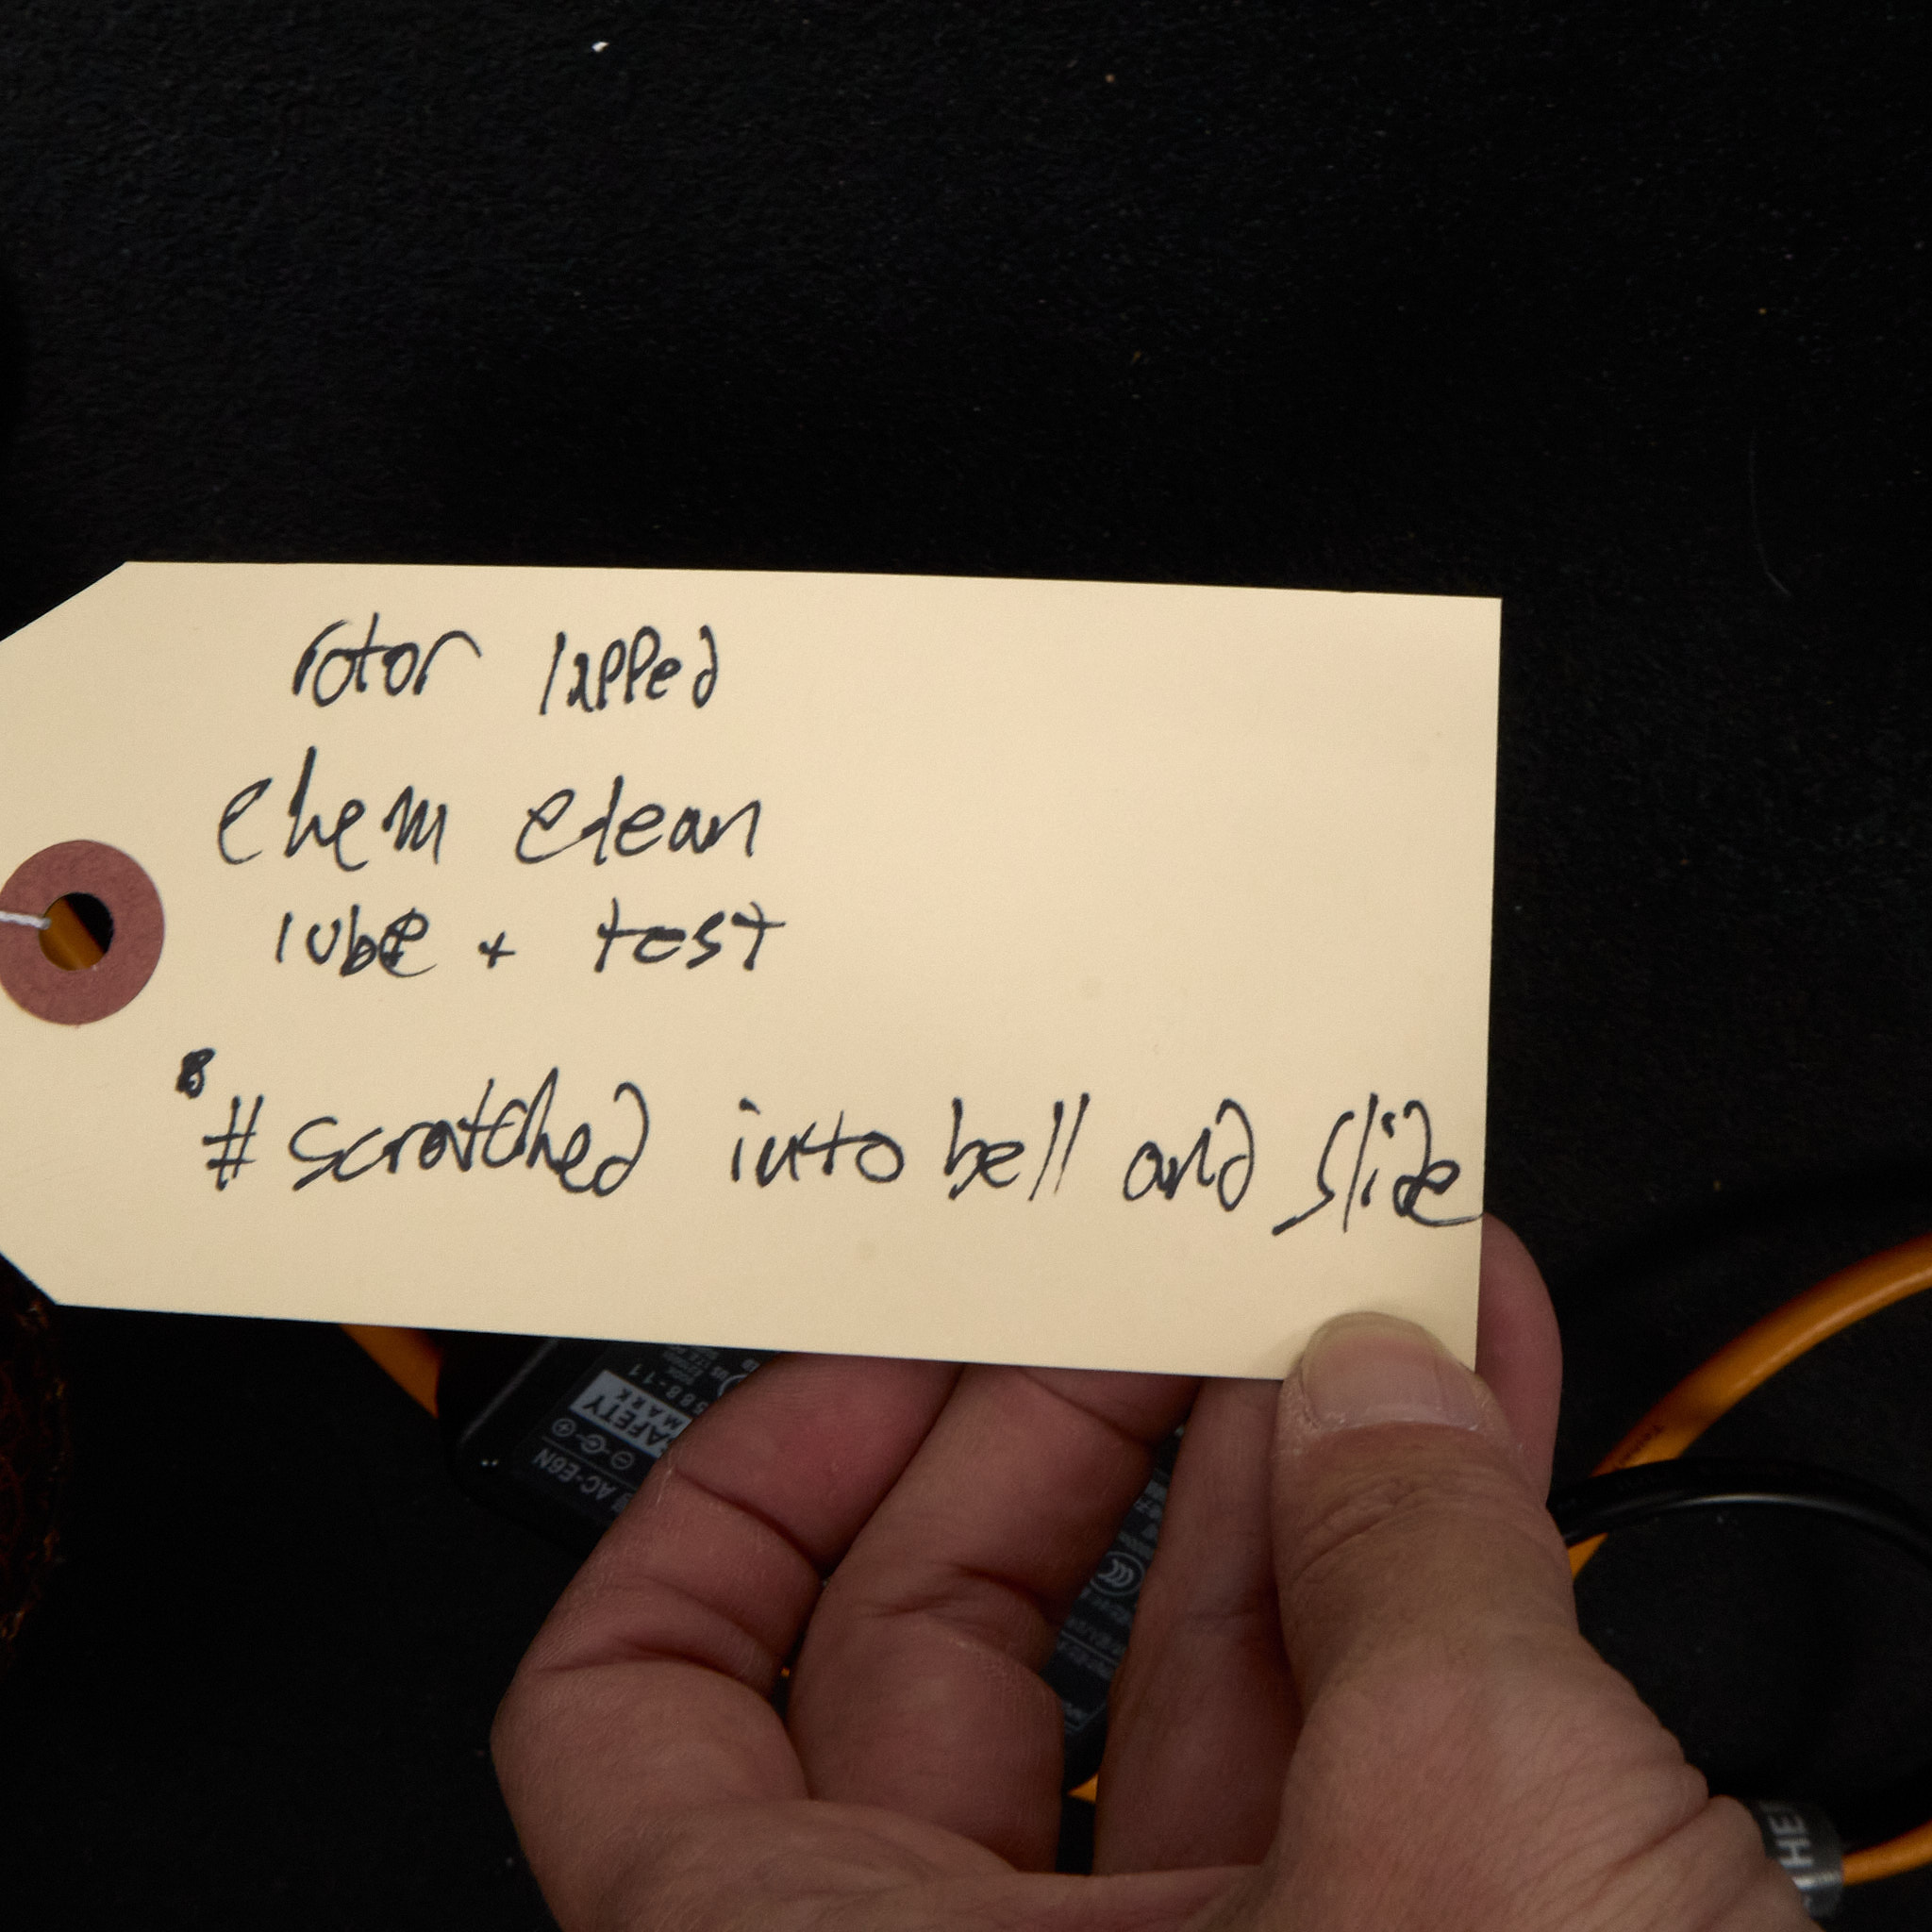 rotor lapped
chem clean
lube + test
8
# scratched into bell and slide
SAFETY
MARK
588-11
AC-E6N
THE